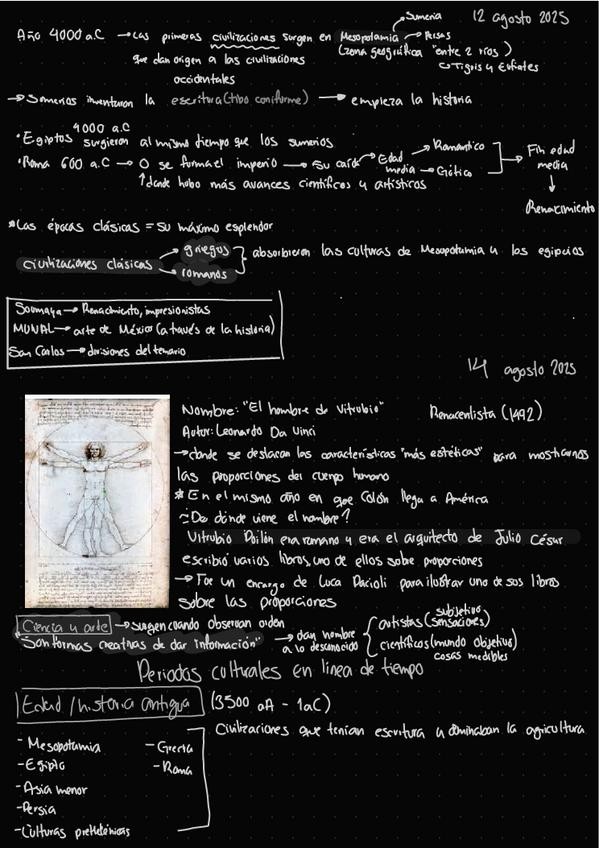 12 agosto 2025
Año 4000 a.C → Las primeras civilizaciones surgen en Mesopotamia → Sumeria → Persas
(zona geográfica "entre 2 ríos")
→ Tigris y Eufrates
que dan origen a las civilizaciones
occidentales
→ Sumerios inventaron la escritura (tipo coniforme) → empieza la historia
4000 a.C
• Egiptos surgieron al mismo tiempo que los sumerios
• Roma 600 a.C → O se forma el imperio → Su caída → Edad media → Romantico → Gótico → Fin edad media → Renacimiento
↑ donde hubo más avances científicos y artísticos
* Las épocas clásicas = su máximo esplendor
civilizaciones clásicas → griegos → romanos } absorbieron las culturas de Mesopotamia y los egipcios
Soumaya → Renacimiento, impresionistas
MUNAL → arte de México (a través de la historia)
San Carlos → divisiones del temario
14 agosto 2025
Nombre: "El hombre de Vitrubio" Renacentista (1492)
Autor: Leonardo Da Vinci
→ donde se destacan las características "más estéticas" para mostrarnos
las proporciones del cuerpo humano
* En el mismo año en que Colón llega a América
¿De dónde viene el nombre?
Vitrubio Polión era romano y era el arquitecto de Julio César
escribió varios libros, uno de ellos sobre proporciones
→ Fue un encargo de Luca Pacioli para ilustrar uno de sus libros
sobre las proporciones
Ciencia y arte → surgen cuando observan orden
"Son formas creativas de dar información" → dan nombre a lo desconocido { artistas (subjetivo sensaciones) científicos (mundo objetivo) cosas medibles
Periodos culturales en linea de tiempo
Edad / historia antigua (3500 aA - 1aC)
Civilizaciones que tenían escritura y dominaban la agricultura
- Mesopotamia - Grecia
- Egipto - Roma
- Asia menor
- Persia
- Culturas prehelénicas